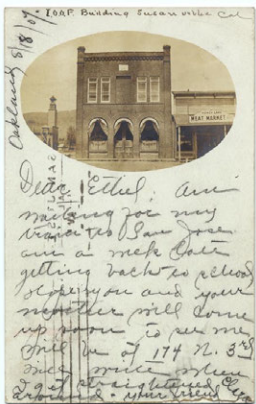 IOOF Building Susanville Cal
Oakland 8/18/07
MEAT MARKET
Dear Ethel: Am
waiting for my
train to San Jose
am a week late
getting back to school
hope you and your
mother will come
up soon to see me
will be at 174 N. 3rd
when
I get straightened
around. your friend